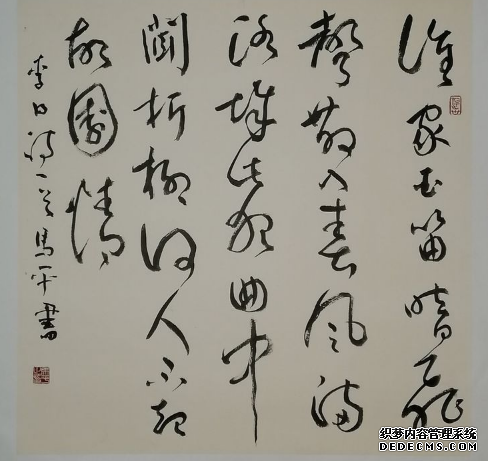 谁家玉笛暗飛
聲散入春风满
洛城此夜曲中
聞折柳何人不起
故園情
李白诗一首馬平書
织梦内容管理系统
DEDECMS.COM